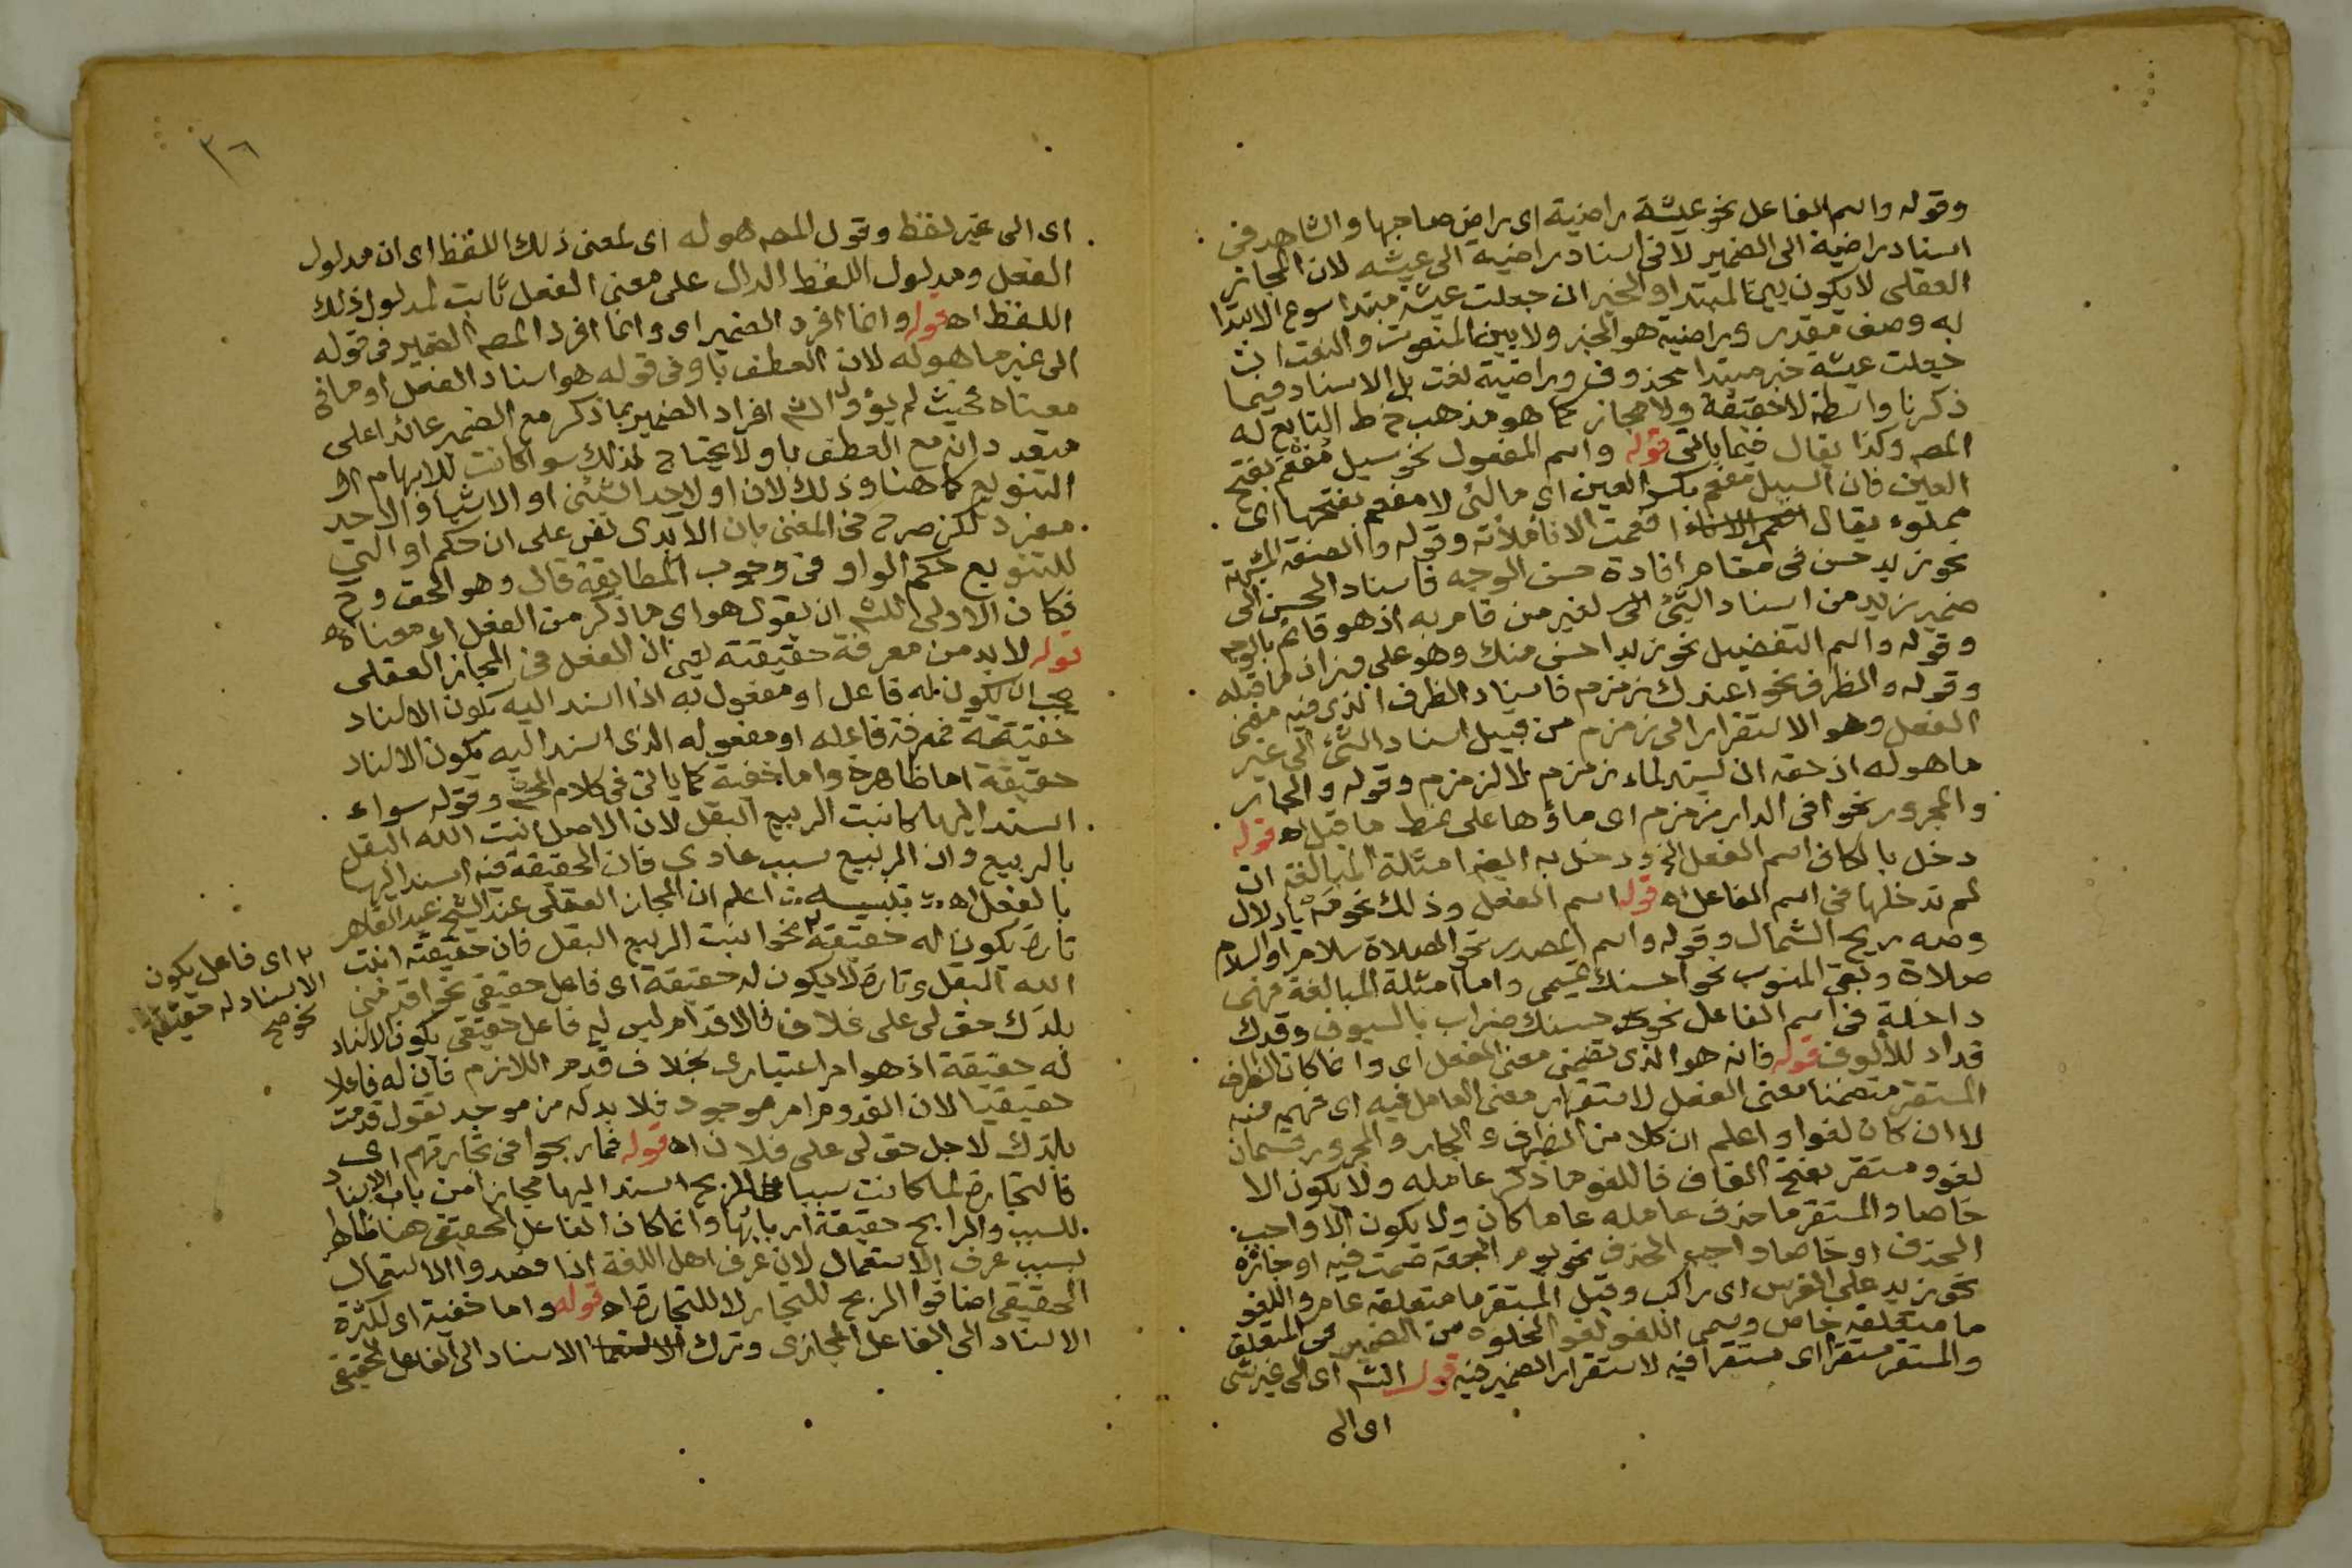 وقوله واسم الفاعل نحو عيشة راضية اى راض صاحبها والشاهد فى
اسناد راضية الى الضمير لا فى اسناد راضية الى عيشه لان المجاز
العقلى لا يكون بين المبتدا والخبر ان جعلت عيشة مبتدا سوع الابتدا
به وصف مقدر وراضية هو الخبر ولا بين المنعوت والنعت ان
جعلت عيشة خبر مبتدا محذوف وراضية نعت بل الاسناد فيما
ذكرنا واسطة لا حقيقة ولا مجاز كما هو مذهب خط التابع له
المصـ وكذا يقال فيما ياتى قوله واسم المفعول نحو سيل مفعم بفتح
العين فان السيل مفعم بكسر العين اى مالئ لا مفعم بفتحها اى
مملوء يقال افعمت الانا ملأته وقوله والصفة المشبهة
نحو زيد حسن فى مقام افادة حسن الوجه فاسناد الحسن الى
ضمير زيد من اسناد الشئ الى لغير من قام به اذ هو قائم بالوجه
وقوله واسم التفضيل نحو زيد احسن منك وهو على ميزان ما قبله
وقوله والظرف نحو اعندك زمزم فاسناد الظرف الذى فيه معنى
الفعل وهو الاستقرار الى زمزم من قبيل اسناد الشئ الى غير
ما هوله اذ حقه ان يسند لماء زمزم لا لزمزم وقوله والجار
والمجرور نحو افى الدار زمزم اى ماؤها على نمط ما قبل اه قوله
دخل بالكاف اسم الفعل الخ ودخل به ايضا امثلة المبالغة ان
لم تدخلها فى اسم الفاعل اه قوله اسم الفعل وذلك نحو مه يا دلال
وصه ريح الشمال وقوله واسم المصدر نحو الصلاة سلام او السلام
صلاة وبقى المنسوب نحو احسنك تميمى واما امثلة المبالغة فهى
داخلة فى اسم الفاعل نحو حسنك ضراب بالسيوف وقدك
قداد للألوف قوله فانه هو الذى تضمن معنى الفعل اى وانما كان الظرف
المستقر متضمنا معنى الفعل لاستقرار معنى العامل فيه اى فهمه منه
لا ان كان لغوا واعلم ان كلا من الظرف والجار والمجرور قسمان
لغو ومستقر بفتح القاف فاللغو ما ذكر عامله ولا يكون الا
خاصا والمستقر ما حذف عامله عاما كان ولا يكون الا واجب
الحذف او خاصا واجب الحذف نحو يوم الجمعة صمت فيه او جائزه
نحو زيد على الفرس اى راكب وقيل المستقر ما متعلقه عام واللغو
ما متعلقه خاص وسمى اللغو لغوا لخلوه من الضمير فى المتعلق
والمستقر مستقرا اى مستقرا فيه لاستقرار الضمير فيه قول الشـ اى الى غير شئ
اى الى
٣٦
اى الى غير لفظ وقول المصـ هوله اى لمعنى ذلك اللفظ اى ان مدلول
الفعل ومدلول اللفظ الدال على معنى الفعل ثابت لمدلول ذلك
اللفظ اه قوله وانما افرد الضمير اى وانما افرد المصـ الضمير فى قوله
الى غير ما هوله لان العطف باو فى قوله هو اسناد الفعل او ما فى
معناه بحيث لم يؤول الشـ افراد الضمير بما ذكر مع الضمير عائد اعلى
متعدد انه مع العطف باو لا يحتاج لذلك سوا كانت للابهام او
التنويع كما هنا وذلك لان او لاحد الشيئين او الاشيا والاحد
مفرد لكن صرح فى المغنى بان الآبدى نص على ان حكم او التى
للتنويع حكم الواو فى وجوب المطابقة قال وهو الحق وح
فكان الاولى للشـ ان يقول هو اى ما ذكر من الفعل او معناه اه
قوله لا بد من معرفة حقيقته يعنى ان الفعل فى المجاز العقلى
يجب ان يكون له فاعل او مفعول به اذا اسند اليه يكون الاسناد
حقيقة فمعرفة فاعله او مفعوله الذى اسند اليه يكون الاسناد
حقيقة اما ظاهرة واما خفية كما ياتى فى كلام المصـ وقوله سواء
اسند اليها كانبت الربيع البقل لان الاصل انبت الله البقل
بالربيع واذ الربيع سبب عادى فان الحقيقة فيه اسند اليها
بالفعل اه تنبيـــه اعلم ان المجاز العقلى عند الشيخ عبد القاهر
تارة يكون له حقيقة ٢ نحو انبت الربيع البقل فان حقيقته انبت
الله البقل وتارة لا يكون له حقيقة اى فاعل حقيقى نحو اقدمنى
بلدك حق لى على فلان فالاقدام ليس له فاعل حقيقى يكون الاسناد
له حقيقة اذ هو امر اعتبارى بخلاف قدم اللازم فان له فاعلا
حقيقيا لان القدوم امر موجود فلا بد له من موجد تقول قدمت
بلدك لاجل حق لى على فلان اه قوله فما ربحوا فى تجارتهم اى
فالتجارة لما كانت سببا للربح اسند اليها مجازا من باب الاسناد
للسبب والرابح حقيقة اربابها وانما كان الفاعل الحقيقى هنا ظاهر
بسبب عرف الاستعمال لان عرف اهل اللغة اذا قصدوا الاستعمال
الحقيقى اضافوا الربح للتجار لا للتجارة اه قوله واما خفية اى لكثرة
الاسناد الى الفاعل المجازى وترك الاسناد الى الفاعل الحقيقى
٢ اى فاعل يكون
الاسناد له حقيقة
نحو صح